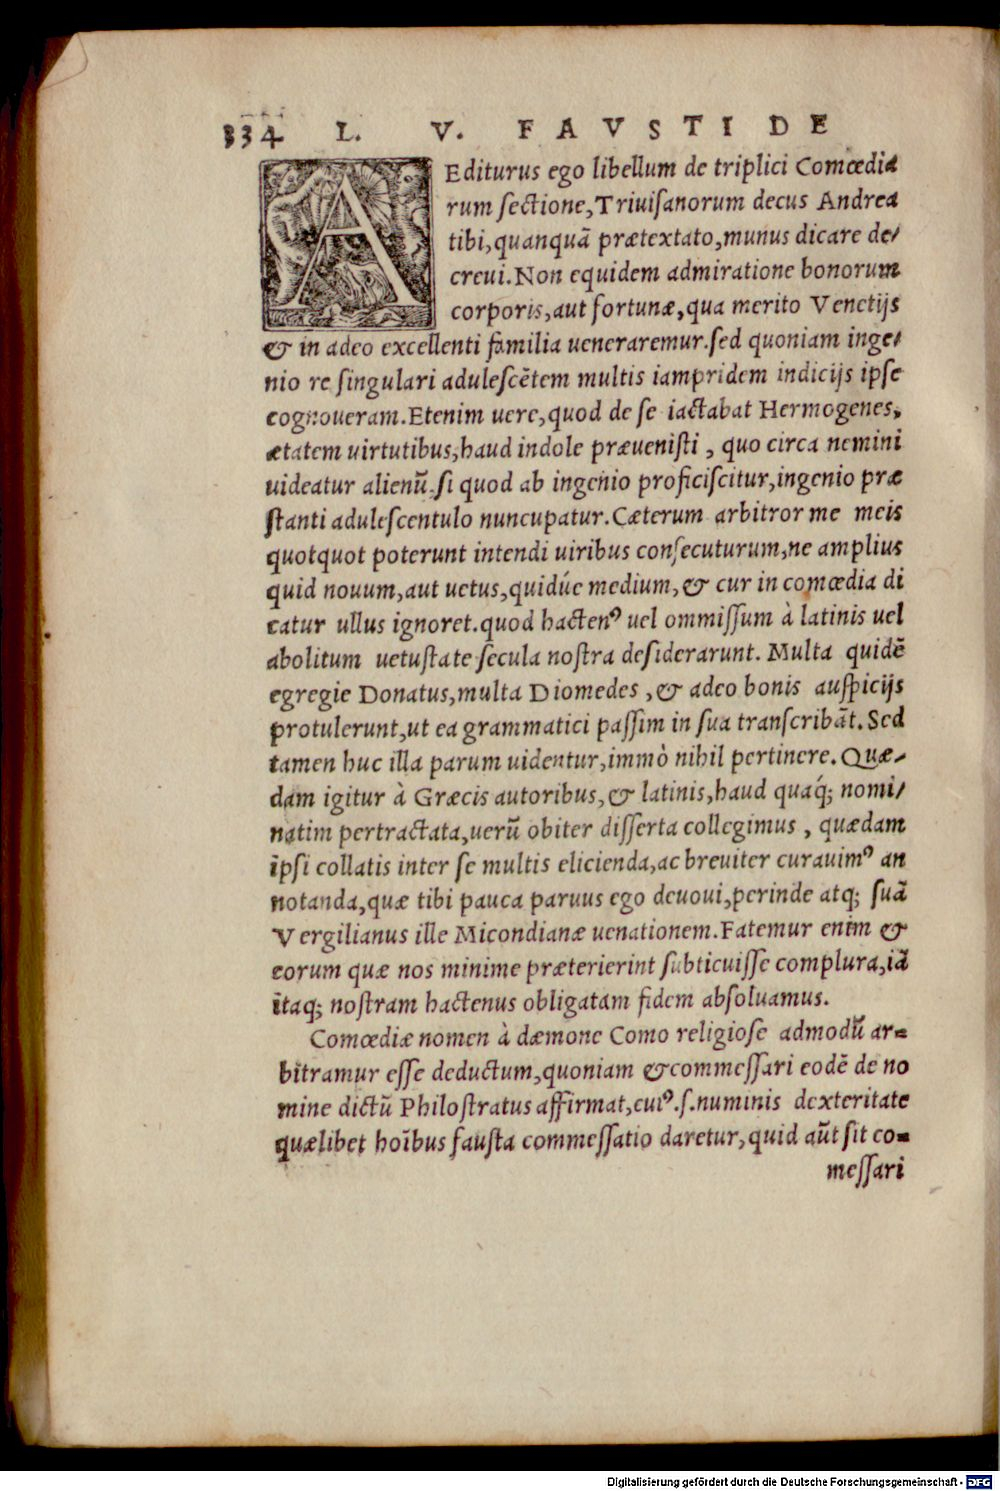 334 L. V. FAVSTI DE
AEditurus ego libellum de triplici Comœdia
rum ſectione,Triuiſanorum decus Andrea
tibi,quanquã prætextato,munus dicare de/
creui.Non equidem admiratione bonorum
corporis,aut fortunæ,qua merito Venetijs
& in adeo excellenti familia ueneraremur.ſed quoniam inge/
nio re ſingulari aduleſcẽtem multis iampridem indicijs ipſe
cognoueram.Etenim uere,quod de ſe iactabat Hermogenes,
ætatem uirtutibus,haud indole præueniſti , quo circa nemini
uideatur alienũ.ſi quod ab ingenio proficiſcitur,ingenio præ
ſtanti aduleſcentulo nuncupatur.Cæterum arbitror me meis
quotquot poterunt intendi uiribus conſecuturum,ne amplius
quid nouum,aut uetus,quidúe medium,& cur in comœdia di
catur ullus ignoret.quod hacten⁹ uel ommiſſum à latinis uel
abolitum uetuſtate ſecula noſtra deſiderarunt. Multa quidẽ
egregie Donatus,multa Diomedes ,& adeo bonis auſpicijs
protulerunt,ut ea grammatici paſſim in ſua tranſcribãt. Sed
tamen huc illa parum uidentur,immò nihil pertinere. Quæ-
dam igitur à Græcis autoribus,& latinis,haud quaq́; nomi/
natim pertractata,uerũ obiter diſſerta collegimus , quædam
ipſi collatis inter ſe multis elicienda,ac breuiter curauim⁹ an
notanda,quæ tibi pauca paruus ego deuoui,perinde atq; ſuã
Vergilianus ille Micondianæ uenationem.Fatemur enim &
eorum quæ nos minime præterierint ſubticuiſſe complura,iã
itaq; noſtram hactenus obligatam fidem abſoluamus.
Comœdiæ nomen à dæmone Como religioſe admodũ ar=
bitramur eſſe deductum,quoniam &commeſſari eodẽ de no
mine dictũ Philoſtratus affirmat,cui⁹.ſ.numinis dexteritate
quælibet hoĩbus fauſta commeſſatio daretur,quid aũt ſit co=
meſſari
Digitalisierung gefördert durch die Deutsche Forschungsgemeinschaft - DFG